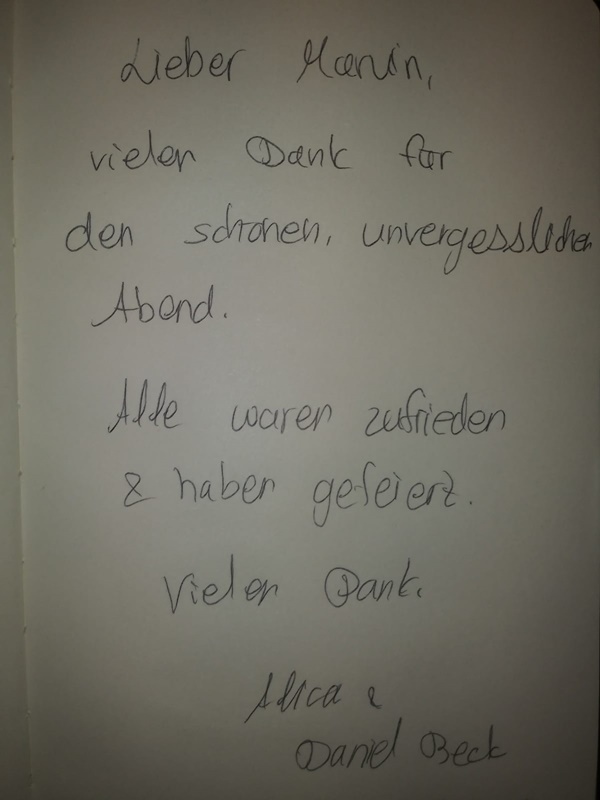 Lieber Marvin,
vielen Dank für
den schönen, unvergesslichen
Abend.
Alle waren zufrieden
& haben gefeiert.
Vielen Dank.
Alica &
Daniel Beck